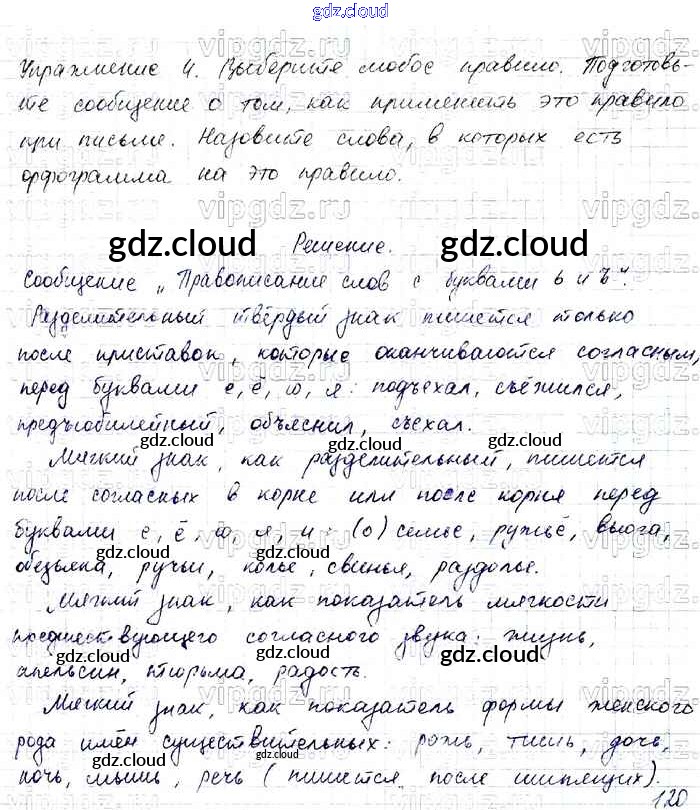 gdz.cloud
Упражнение 4. Выберите любое правило. Подготовь-
те сообщение о том, как применять это правило
при письме. Назовите слова, в которых есть
орфограмма на это правило.
gdz.cloud
Решение.
gdz.cloud
Сообщение „Правописание слов с буквами ь и ъ".
Разделительный твёрдый знак пишется только
после приставок, которые оканчиваются согласным,
перед буквами е, ё, ю, я: подъехал, съёжился,
предъюбилейный, объяснил, съехал.
gdz.cloud
gdz.cloud
Мягкий знак, как разделительный, пишется
после согласных в корне или после корня перед
буквами е, ё, ю, я, и: (о) семье, ружьё, вьюга,
обезьяна, ручьи, копьё, свинья, раздолье.
gdz.cloud
gdz.cloud
Мягкий знак, как показатель мягкости
предшествующего согласного звука: жизнь,
gdz.cloud
апельсин, тюрьма, радость.
gdz.cloud
Мягкий знак, как показатель формы женского
рода имён существительных: рожь, тишь, дочь,
gdz.cloud
gdz.cloud
ночь, мышь, речь (пишется после шипящих).
120